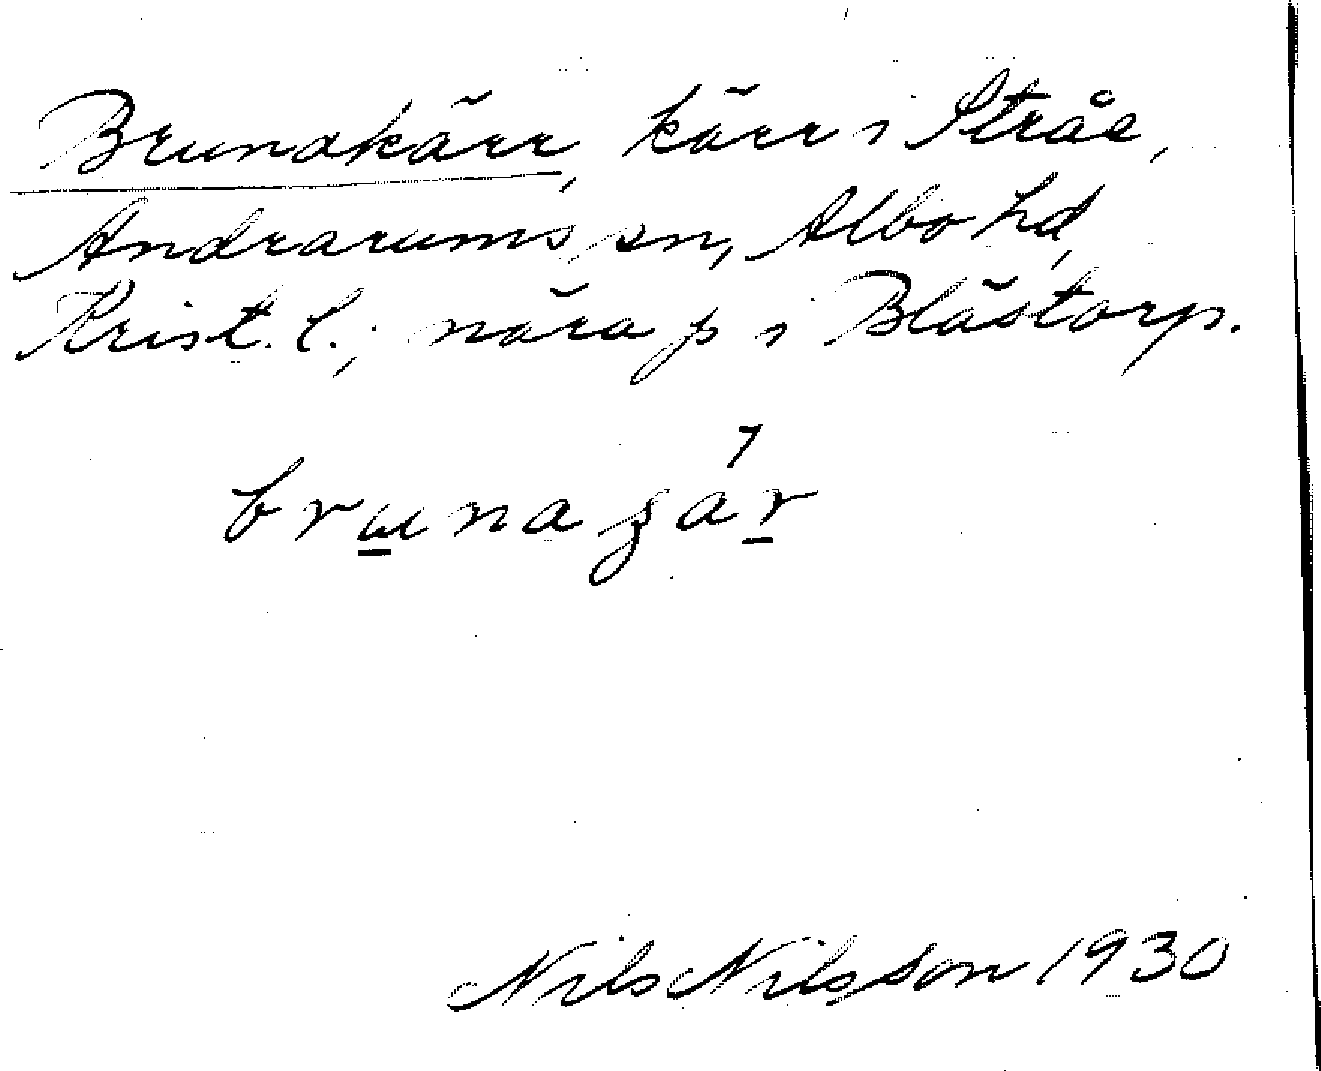 Brunakärr, kärr i Stråe,
Andrarums sn, Albo hd,
Krist. l.; nära p i Blästorp.
brunagár
Nils Nilsson 1930